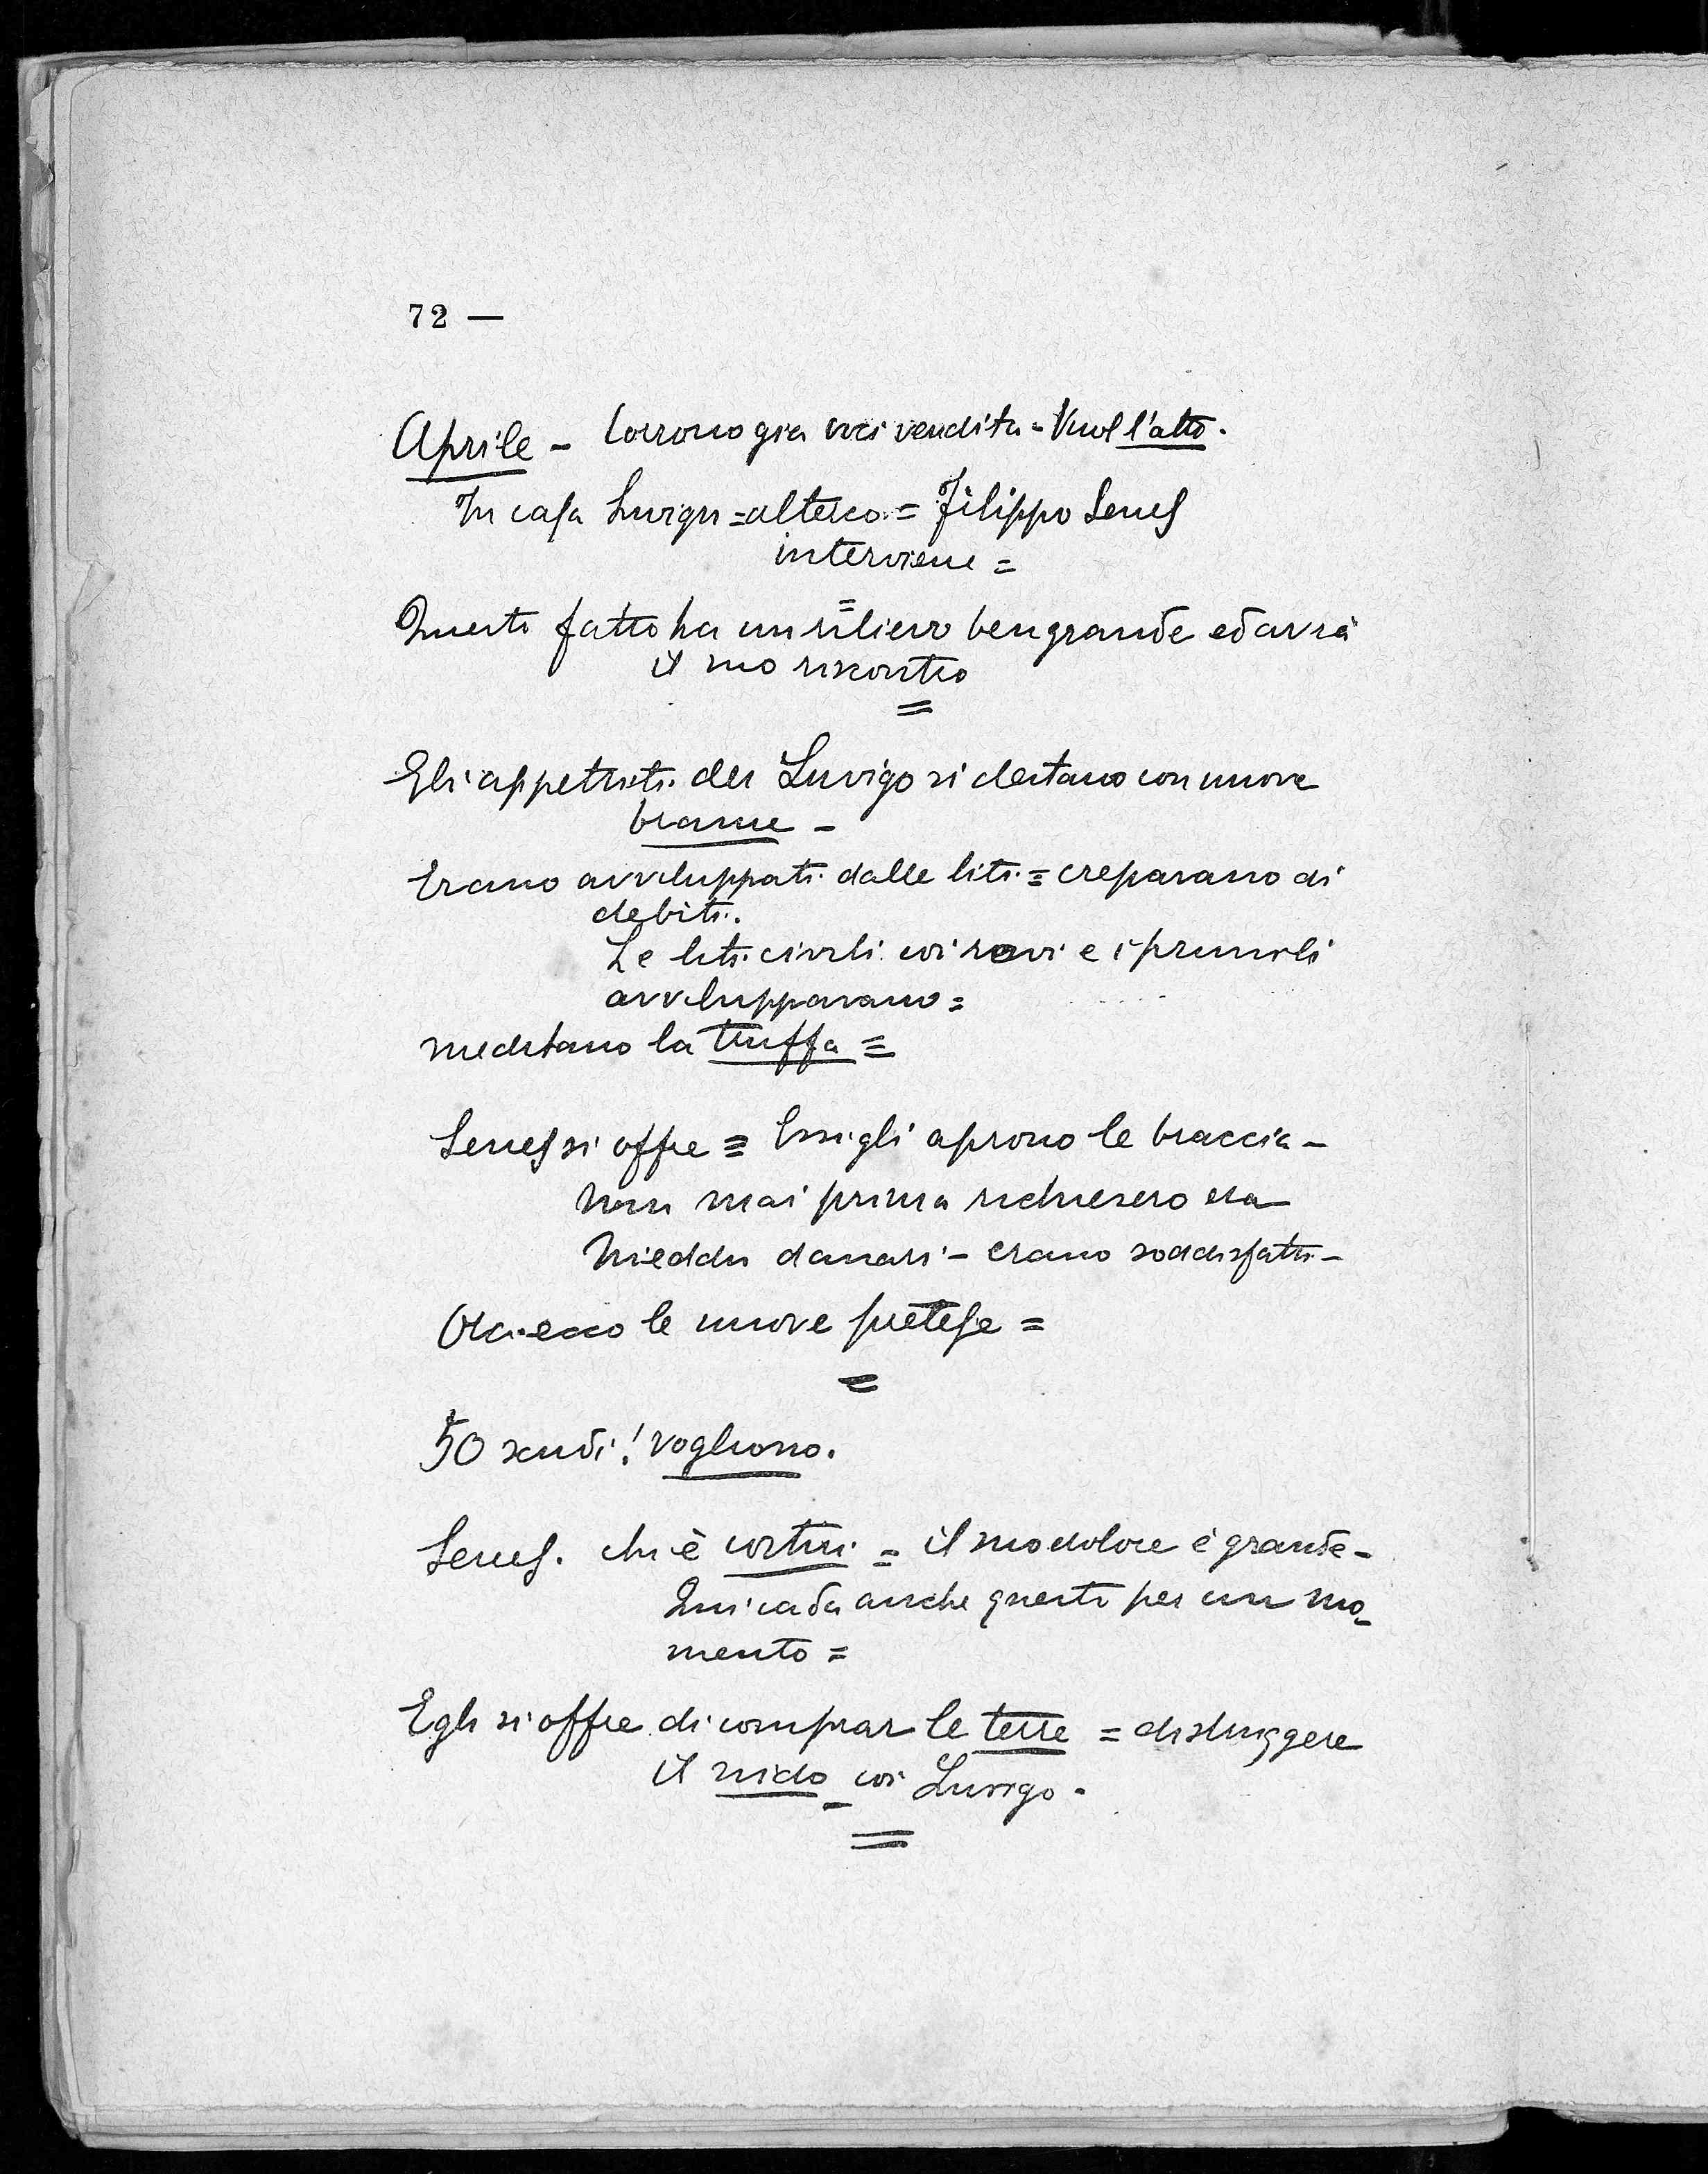 72 —
Aprile - Corrono gia voci vendita = Vuol l'atto.
In casa Luvigu = alterco = Filippo Senes
interviene =
=
Questo fatto ha un rilievo ben grande ed avrà
il suo riscontro
=
Gli appettiti dei Luvigo si destano con nuove
brame -
Erano avviluppati dalle liti = crepavano di
debiti.
Le liti civili coi rovi e i prunoli
avvilupparano =
meditano la truffa =
Senes si offre = Essi gli aprono le braccia -
Non mai prima richiesero era
Nieddu danari - erano soddisfatti -
Ora ecco le nuove pretese =
=
50 scudi! vogliono.
Senes. chi è costui = il suo dolore è grande -
Qui cada anche questo per un mo-
mento =
Egli si offre di comprar le terre = distruggere
il nido coi Luvigo.
=